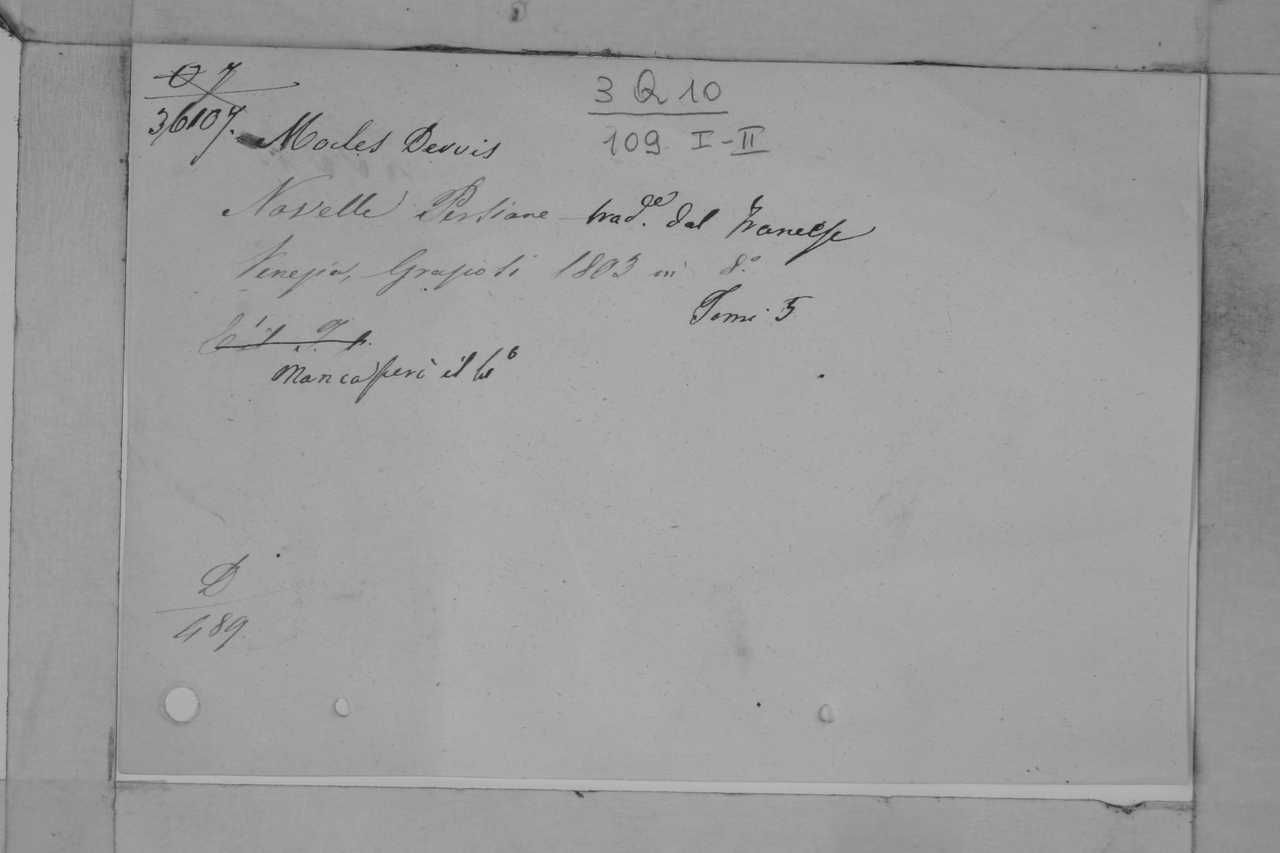 O 7
36107.
3 Q 10
109 I-II
Mocles Dervis
Novelle Persiane trad.e dal Francese
Venezia, Grapoli 1803 in 8.o
Tomi 5
Manca però il 4o
D
489.